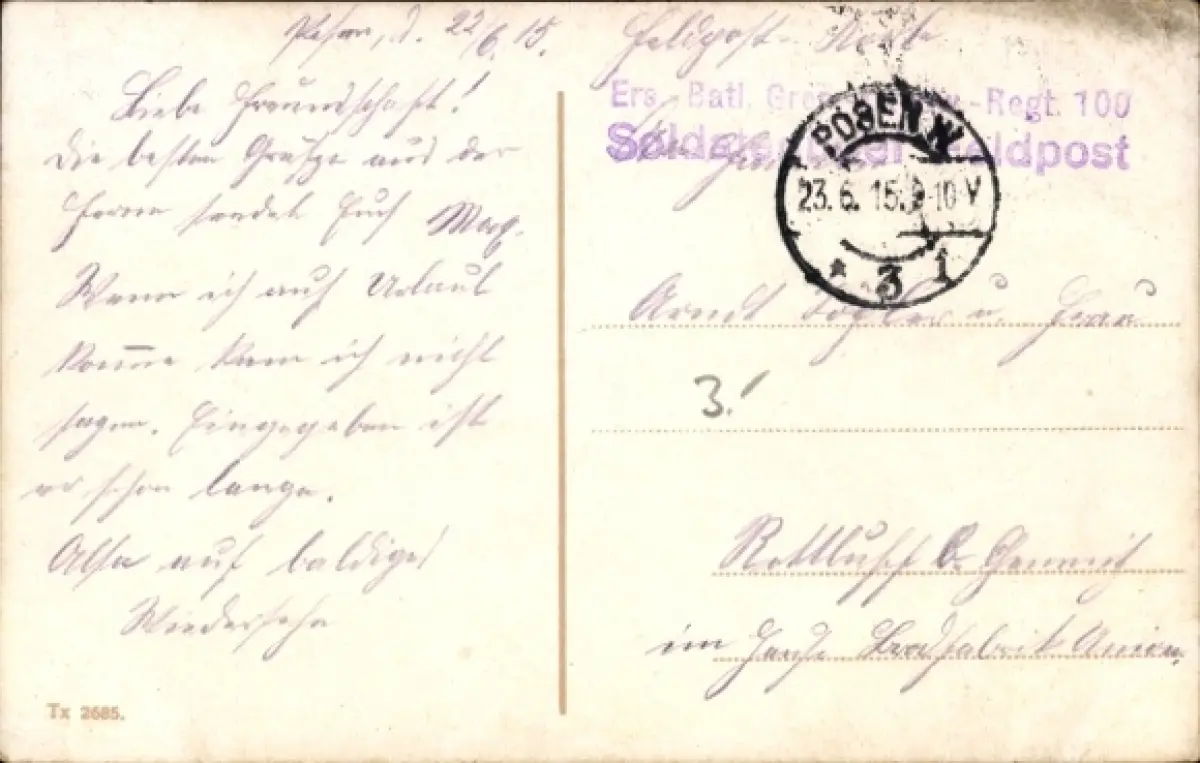 Posen, d. 22/6.15.
Liebe Freundschaft!
Die besten Grüße aus der
Ferne sendet Euch Max.
Wann ich auf Urlaub
komme kann ich nicht
sagen. Eingegeben ist
er schon lange.
Also auf baldiges
Wiedersehn
Tx 2685.
Feldpost-Karte
Ers. Batl. Regt. 100
Feldpost
POSEN W
23. 6. 15. 9-10 V
* 3 1
Arndt u. Frau
3.!
Rottluff b. Chemnitz
im Hause